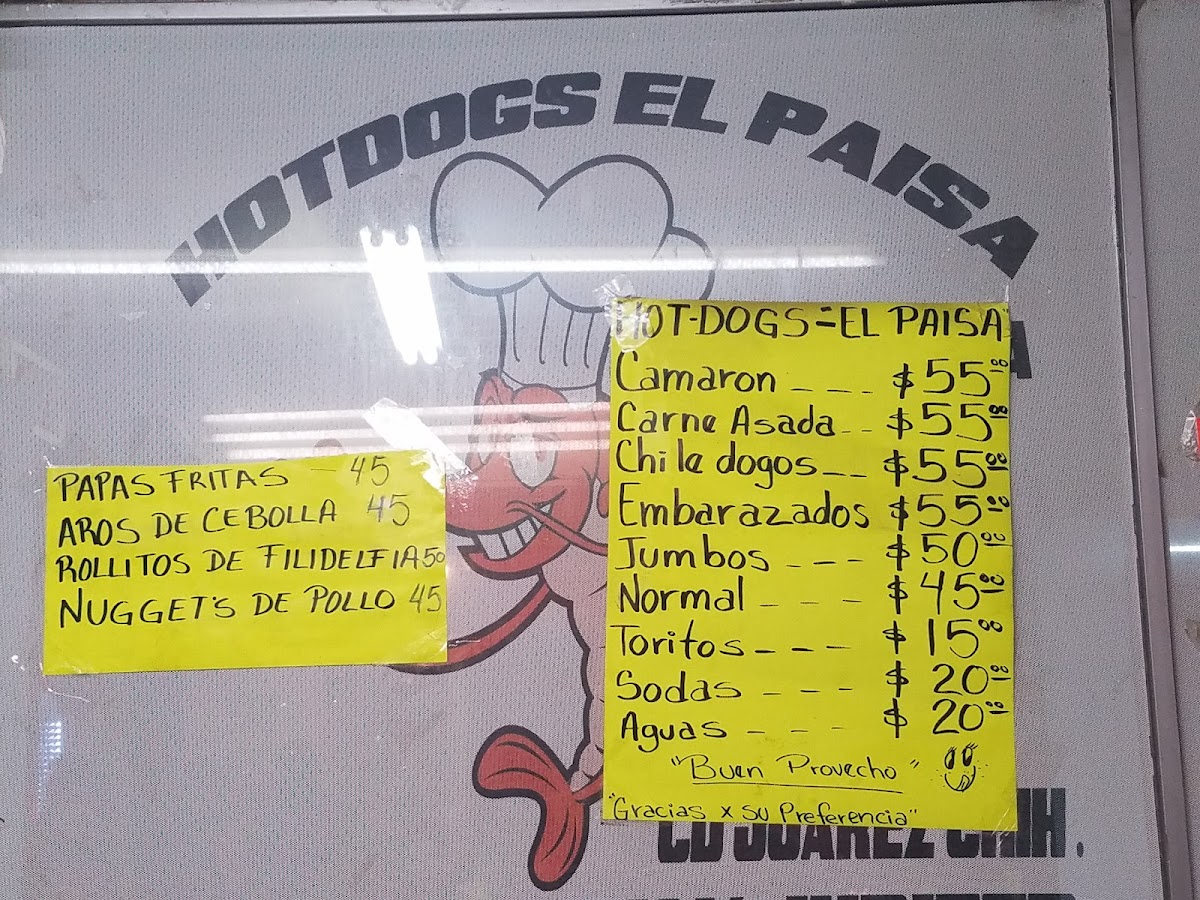 HOTDOGS EL PAISA
HOT-DOGS=EL PAISA
Camaron _ _ _ _ $55.00
Carne Asada _ _ $55.00
Chile dogos _ _ $55.00
Embarazados $55.00
Jumbos _ _ _ $50.00
Normal _ _ _ $45.00
Toritos _ _ _ $15.00
Sodas _ _ _ $20.00
Aguas _ _ _ $20.00
"Buen Provecho"
"Gracias x su Preferencia"
PAPAS FRITAS — 45
AROS DE CEBOLLA 45
ROLLITOS DE FILIDELFIA 50
NUGGET'S DE POLLO 45
CD JUAREZ CHIH.